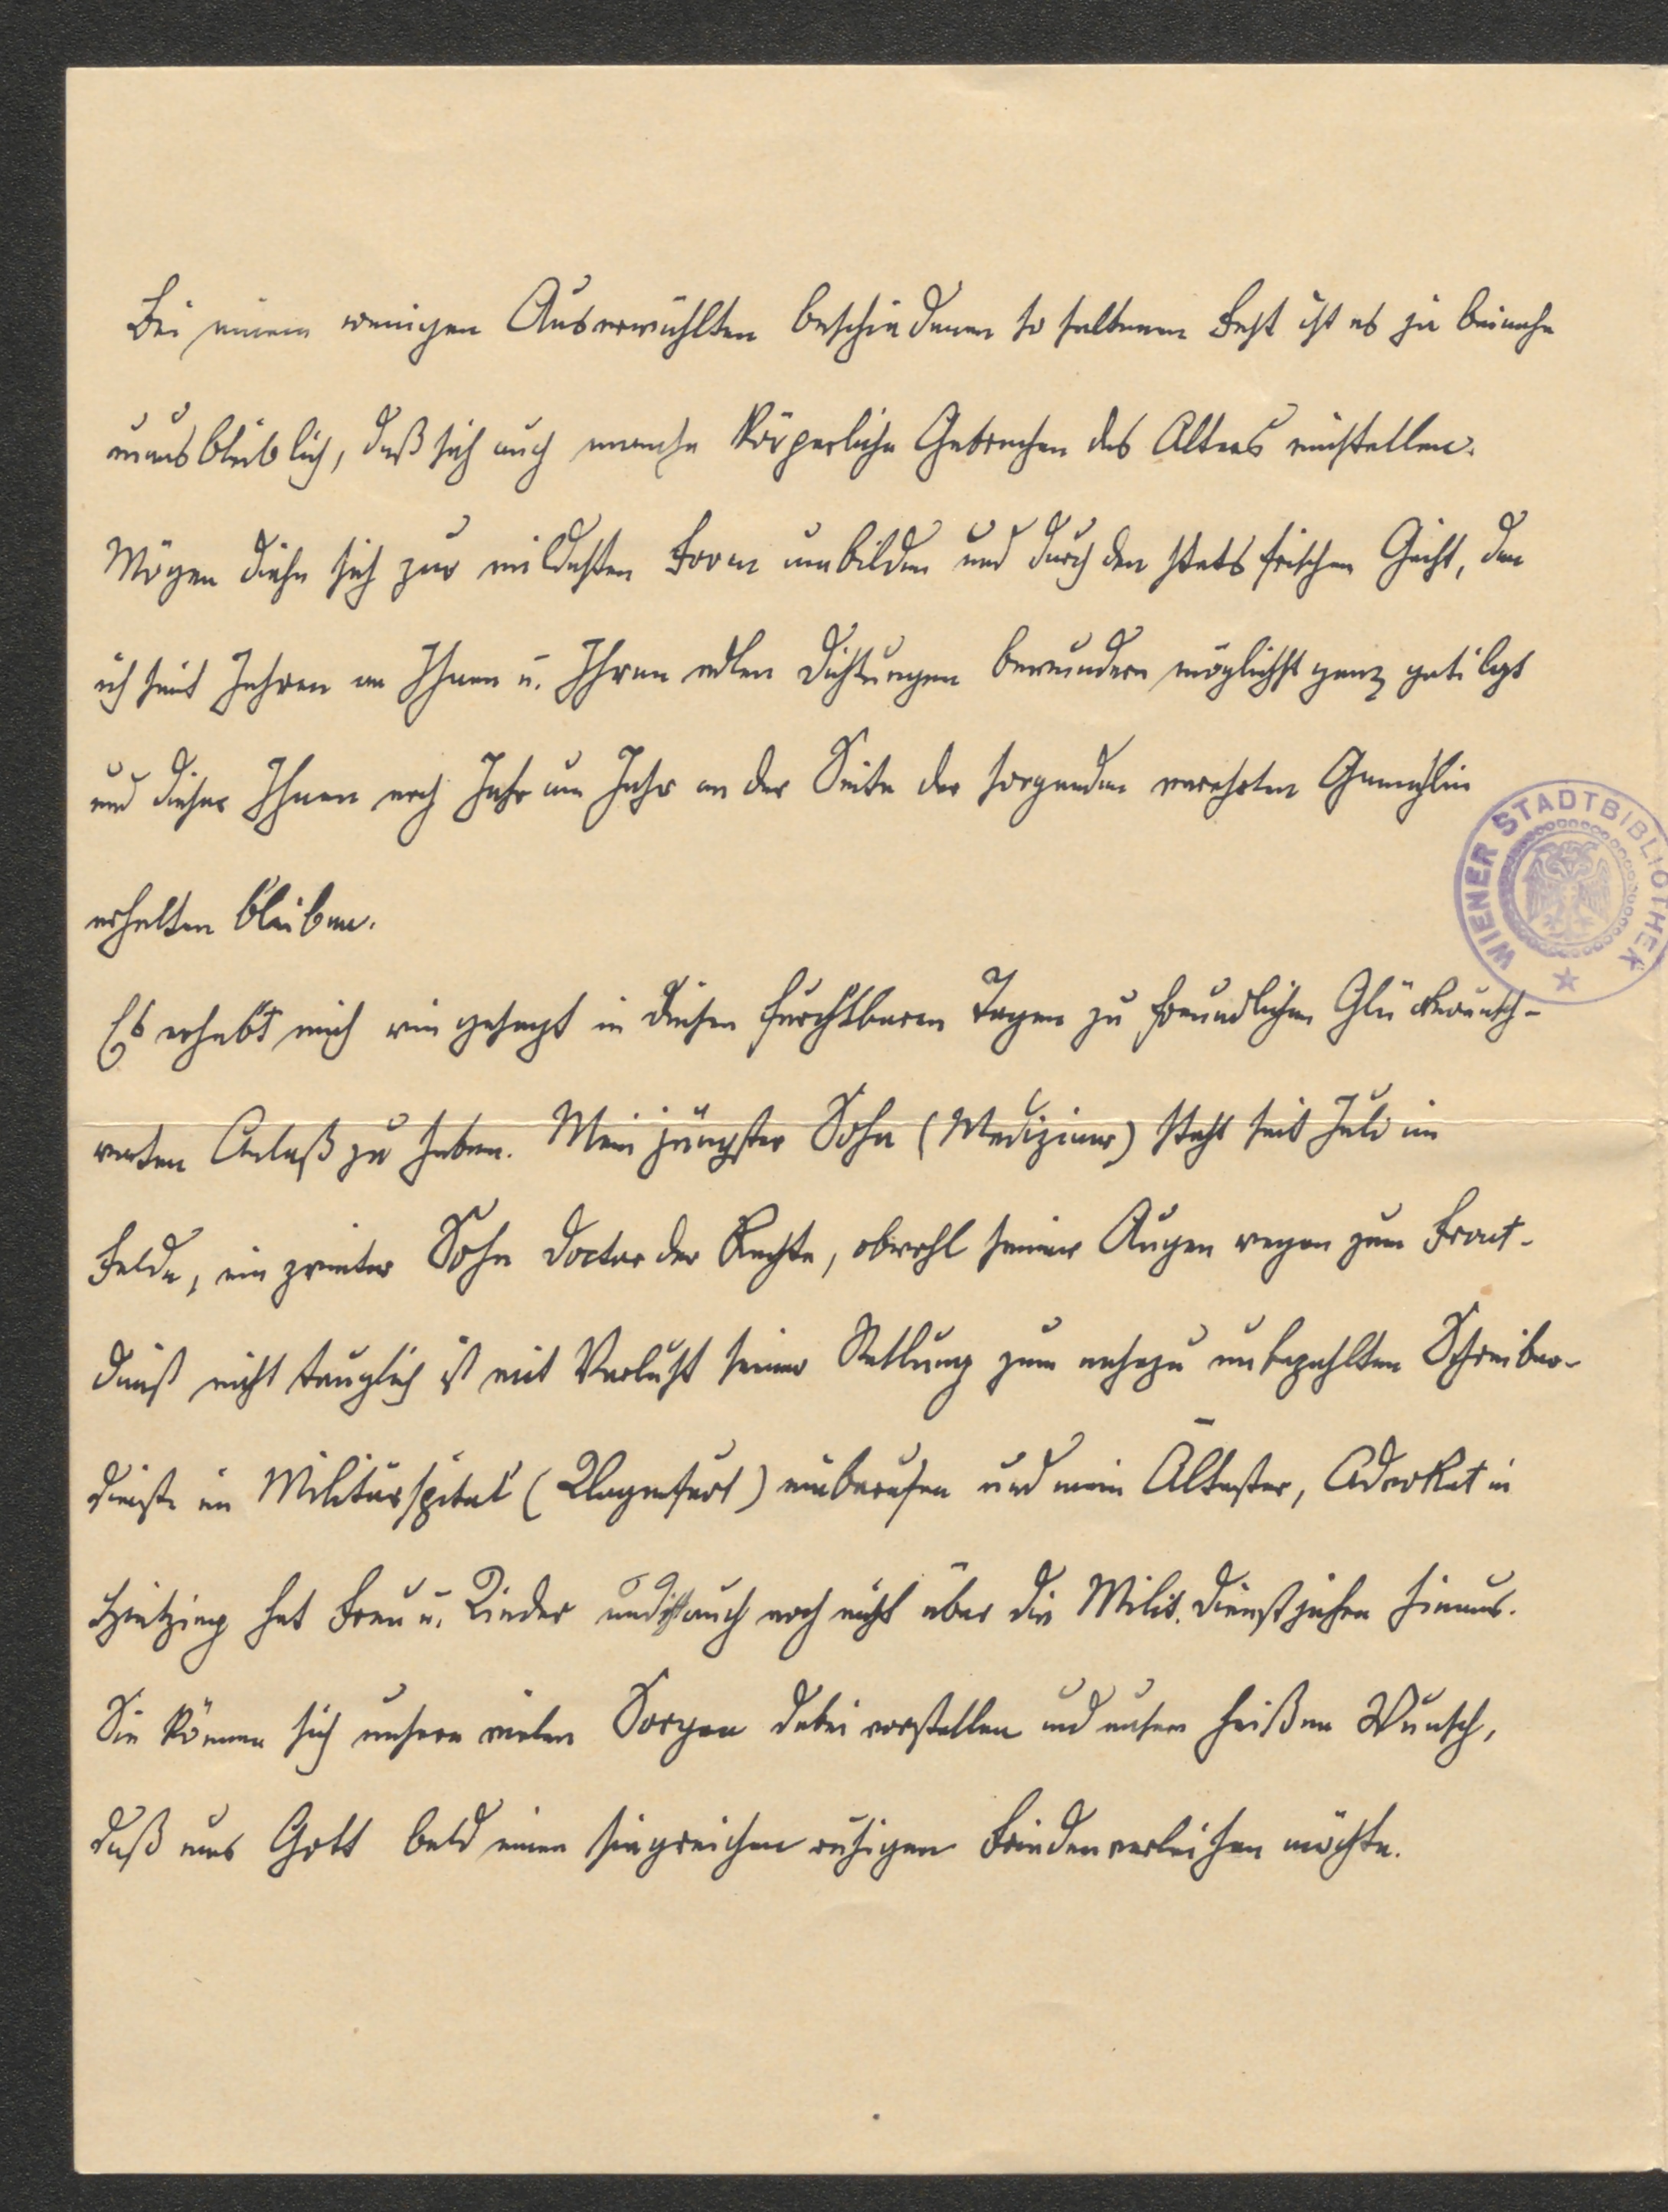 Bei einem wenigen Auserwählten beschiedenen so seltenem Fest ist es ja beinahe
unausbleiblich, daß sich auch manche körperliche Gebrechen des Alters einstellen.
Mögen diese sich zur mildesten Form umbilden und durch den stets frischen Geist, den
ich seit Jahren an Ihnen u. Ihren edlen Dichtungen bewundere möglichst ganz getilgt
und dieser Ihnen noch Jahr um Jahr an der Seite der sorgenden verehrten Gemahlin
erhalten bleiben.
WIENER STADTBIBLIOTHEK
Es erhebt mich wie gesagt in diesen furchtbaren Tagen zu freundlichen Glückwunsch-
worten Anlaß zu haben. Mein jüngster Sohn (Mediziner) steht seit Juli im
Felde, ein zweiter Sohn Doctor der Rechte, obwohl seiner Augen wegen zum Front-
dienst nicht tauglich ist mit Verlust seiner Stellung zum nahezu unbezahlten Schreiber-
dienste im Militärspital (Klagenfurt) einberufen und mein Ältester, Advokat in
Hietzing hat Frau u. Kinder und ist auch noch nicht über die Milit. Dienstjahre hinaus.
Sie können sich unsere vielen Sorgen dabei vorstellen und unsern heißen Wunsch,
daß uns Gott bald einen siegreichen ruhigen Frieden verleihen möchte.